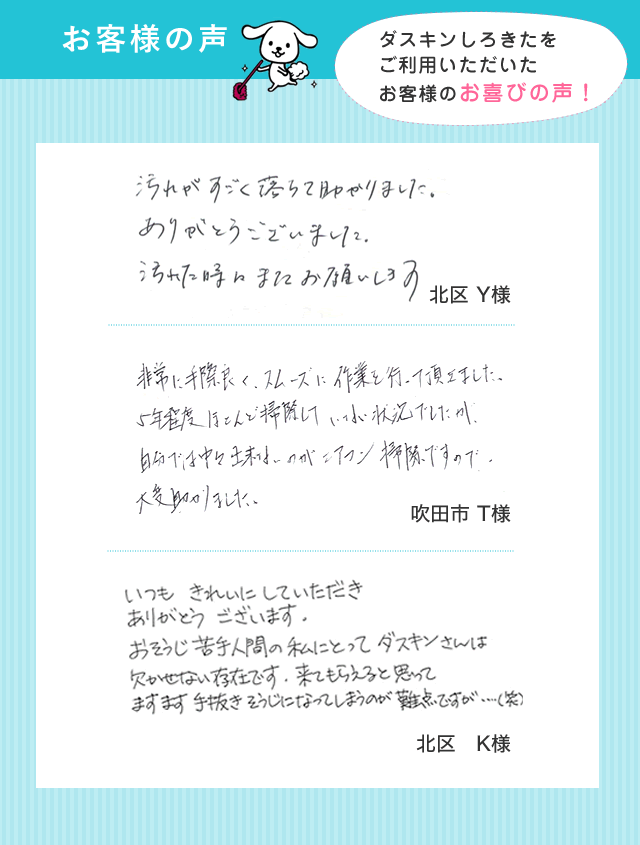 お客様の声
ダスキンしろきたを
ご利用いただいた
お客様のお喜びの声！
汚れがすごく落ちて助かりました。
ありがとうございました。
汚れた時にまたお願いします
北区 Y様
非常に手際良く、スムーズに作業を行って頂きました。
5年程度ほとんど掃除していない状況でしたが、
自分では中々出来ないのがエアコン掃除ですので、
大変助かりました。
吹田市 T様
いつも きれいにしていただき
ありがとう ございます。
おそうじ苦手人間の私にとって ダスキンさんは
欠かせない存在です。来てもらえると思って
ますます手抜きそうじになってしまうのが難点ですが…(笑)
北区 K様